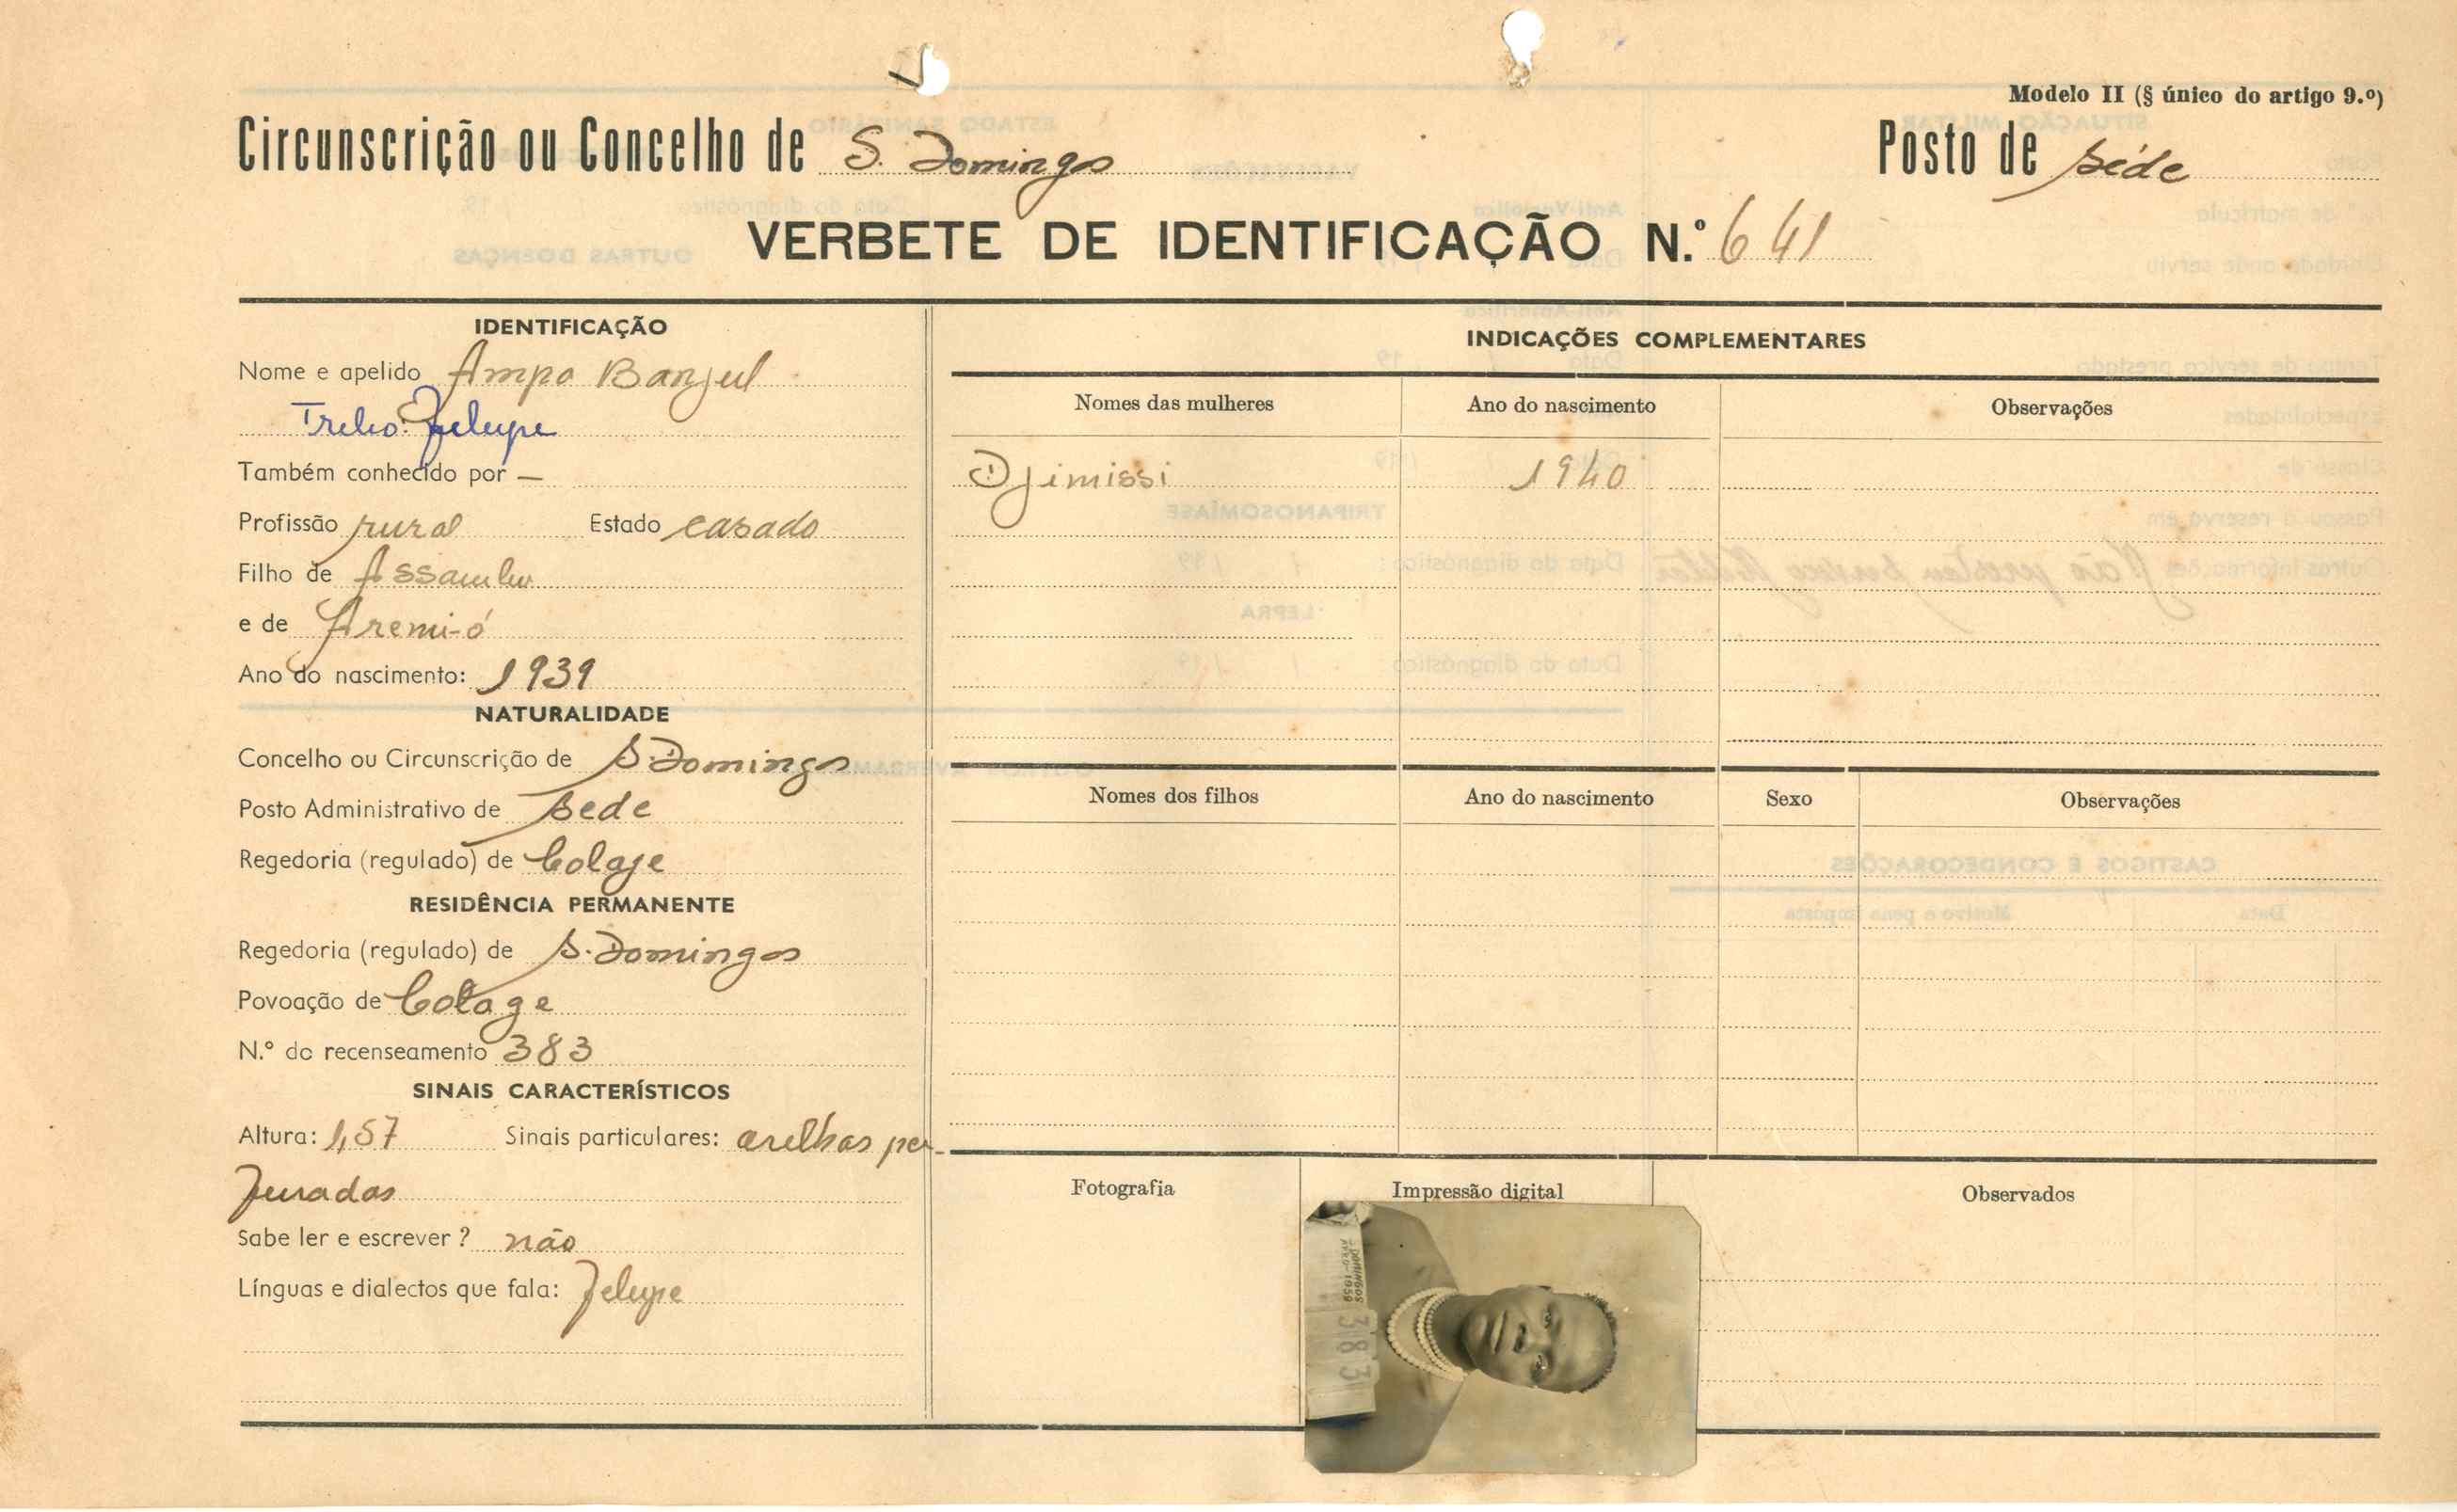 Modelo II (§ único do artigo 9.º)
Circunscrição ou Concelho de S. Domingos
Posto de séde
VERBETE DE IDENTIFICAÇÃO N.º 641
IDENTIFICAÇÃO
Nome e apelido Ampa Banjul
Felupe
Também conhecido por —
Profissão rural Estado casado
Filho de
e de Aremi-ó
Ano do nascimento: 1939
NATURALIDADE
Concelho ou Circunscrição de S. Domingos
Posto Administrativo de sede
Regedoria (regulado) de Colage
RESIDÊNCIA PERMANENTE
Regedoria (regulado) de S. Domingos
Povoação de Colage
N.º do recenseamento 383
SINAIS CARACTERÍSTICOS
Altura: 1,57 Sinais particulares: orelhas per-
furadas
Sabe ler e escrever? não
Línguas e dialectos que fala: Felupe
INDICAÇÕES COMPLEMENTARES
Nomes das mulheres Ano do nascimento Observações
Djimissi 1940
Nomes dos filhos Ano do nascimento Sexo Observações
Fotografia Impressão digital Observados
DOMINGOS
383